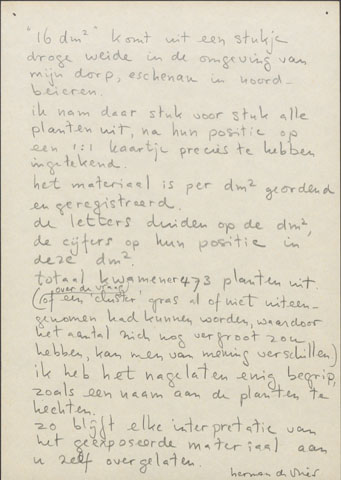 "16 dm²" komt uit een stukje
droge weide in de omgeving van
mijn dorp, eschenau in noord-
beieren.
ik nam daar stuk voor stuk alle
planten uit, na hun positie op
een 1:1 kaartje precies te hebben
ingetekend.
het materiaal is per dm² geordend
en geregistreerd.
de letters duiden op de dm²,
de cijfers op hun positie in
deze dm².
totaal kwamen er 473 planten uit.
over de vraag
(of een cluster gras al of niet uiteen-
genomen had kunnen worden, waardoor
het aantal zich nog vergroot zou
hebben, kan men van mening verschillen)
ik heb het nagelaten enig begrip,
zoals een naam aan de planten te
hechten.
zo blijft elke interpretatie van
het geëxposeerde materiaal aan
u zelf overgelaten.
herman de vries